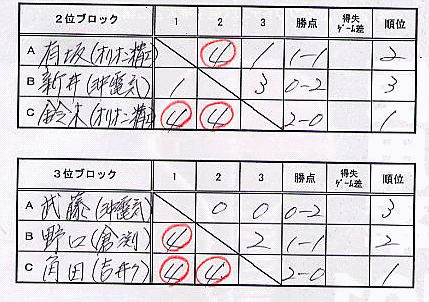 2位ブロック 1 2 3 勝点 得失ゲーム差 順位
A 有坂(オリオン精工 ④ 1 1-1 2
B 新井(沖電気) 1 3 0-2 3
C 鈴木(オリオン精工 ④ ④ 2-0 1
3位ブロック 1 2 3 勝点 得失ゲーム差 順位
A 武藤(沖電気) 0 0 0-2 3
B 野口(倉渕) ④ 2 1-1 2
C 角田(吉井ク) ④ ④ 2-0 1